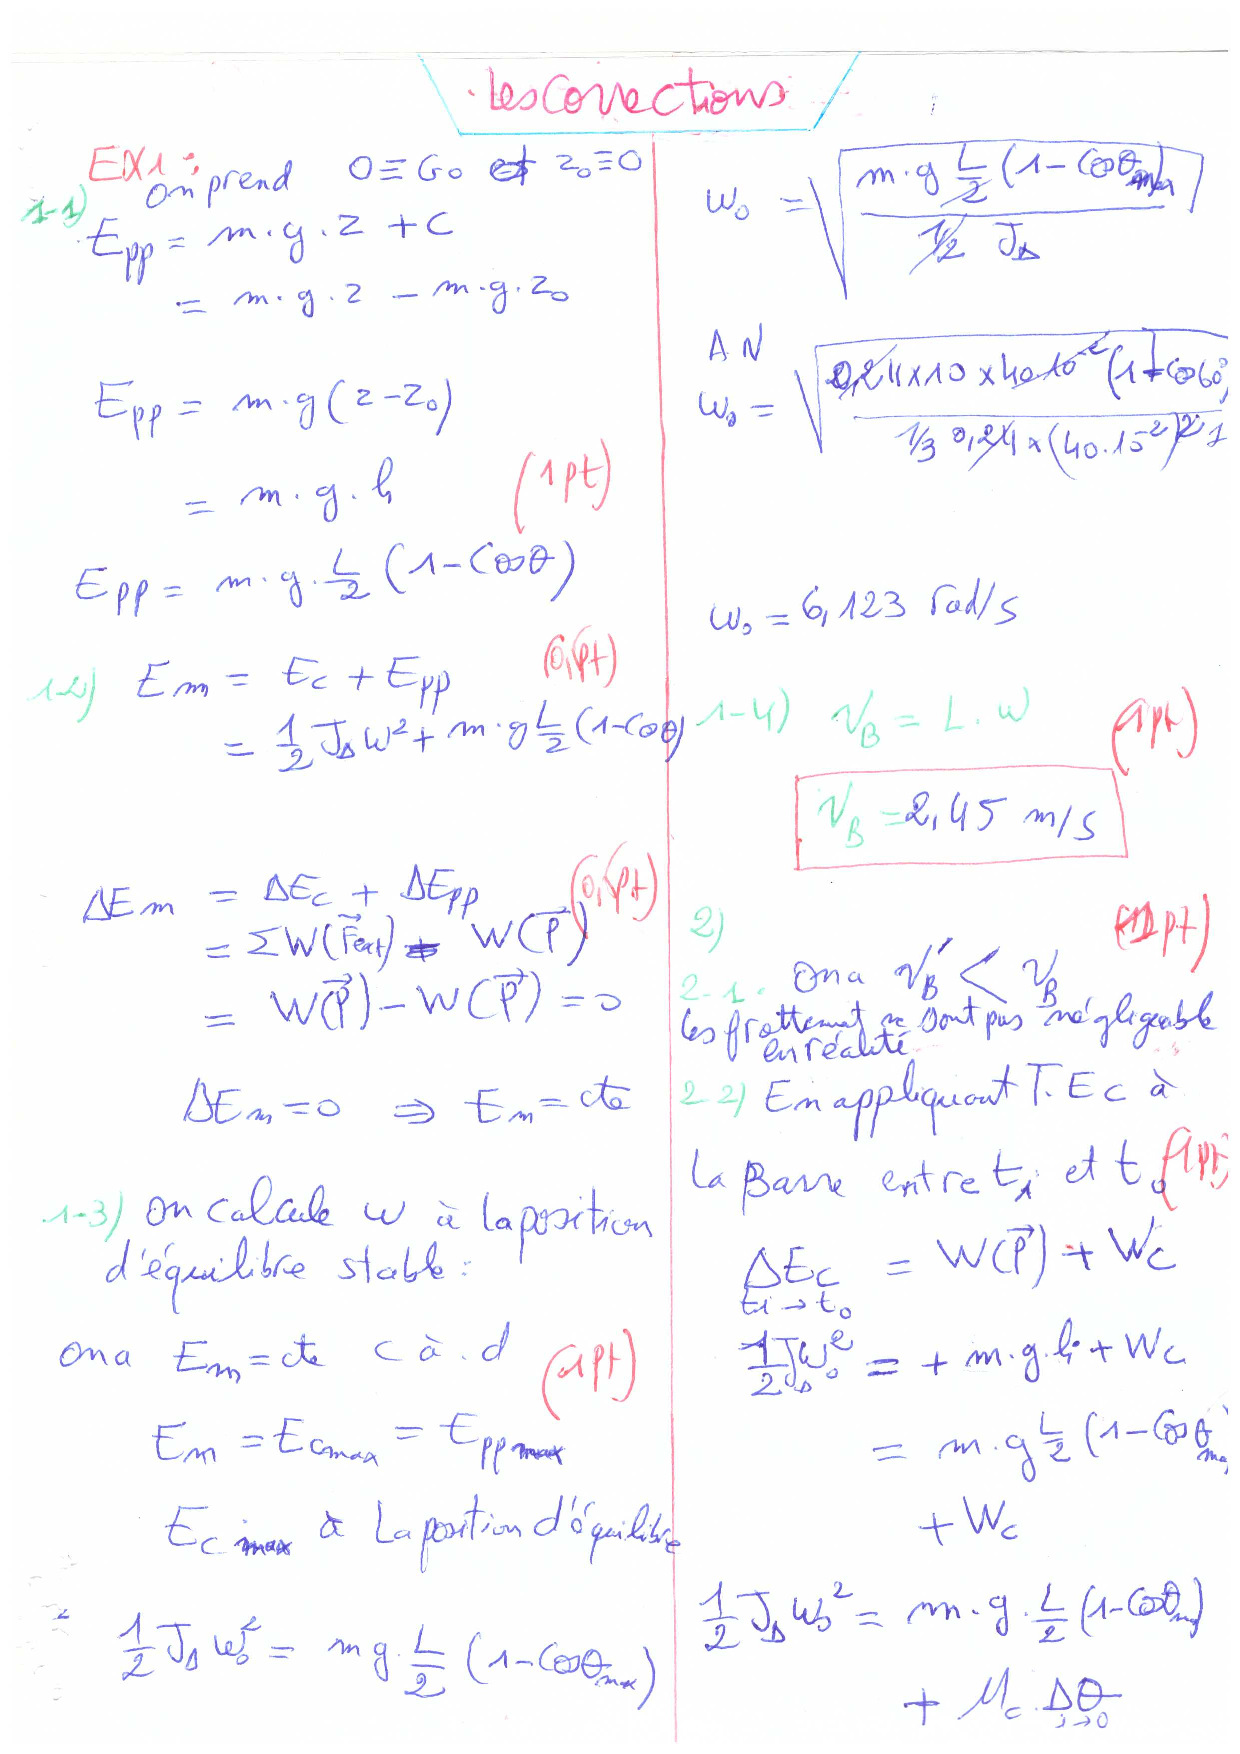 Les Corrections
EX1:
1-1) on prend O≡G₀ et z₀≡0
Epp = m.g.z + C
= m.g.z - m.g.z₀
Epp = m.g(z-z₀)
= m.g.h (1pt)
Epp = m.g.L/2 (1-Cosθ)
1-2) Em = Ec + Epp
= 1/2 J_Δ ω² + m.g L/2 (1-Cosθ)
ΔEm = ΔEc + ΔEpp
= ΣW(F⃗ext) - W(P⃗)
= W(P⃗) - W(P⃗) = 0
ΔEm = 0 ⇒ Em = cte
1-3) On calcule ω à la position
d'équilibre stable :
on a Em = cte c à.d (1pt)
Em = Ecmax = Eppmax
Ecmax à La position d'équilibre
1/2 J_Δ ω₀² = mg.L/2 (1-Cosθmax)
ω₀ = √(m.g L/2 (1-Cosθmax) / 1/2 J_Δ)
AN
ω₀ = √(0,24x10x40.10⁻² (1-Cos60°) / 1/3 0,24x(40.10⁻²)²
ω₀ = 6,123 rad/s
1-4) v_B = L.ω (1pt)
v_B = 2,45 m/s
2) (1pt)
2-1. On a v'_B < v_B
les frottement ne sont pas négligeable
en réalité
2-2) En appliquant T.Ec à
La Barre entre t₁ et t₀ (1pt)
ΔEc = W(P⃗) + Wc
ti → t₀
1/2 J_Δ ω₀² = + m.g.h + Wc
= m.g L/2 (1-Cosθma
+ Wc
1/2 J_Δ ω₀² = m.g.L/2 (1-Cosθm)
+ Mc.Δθ
i→0